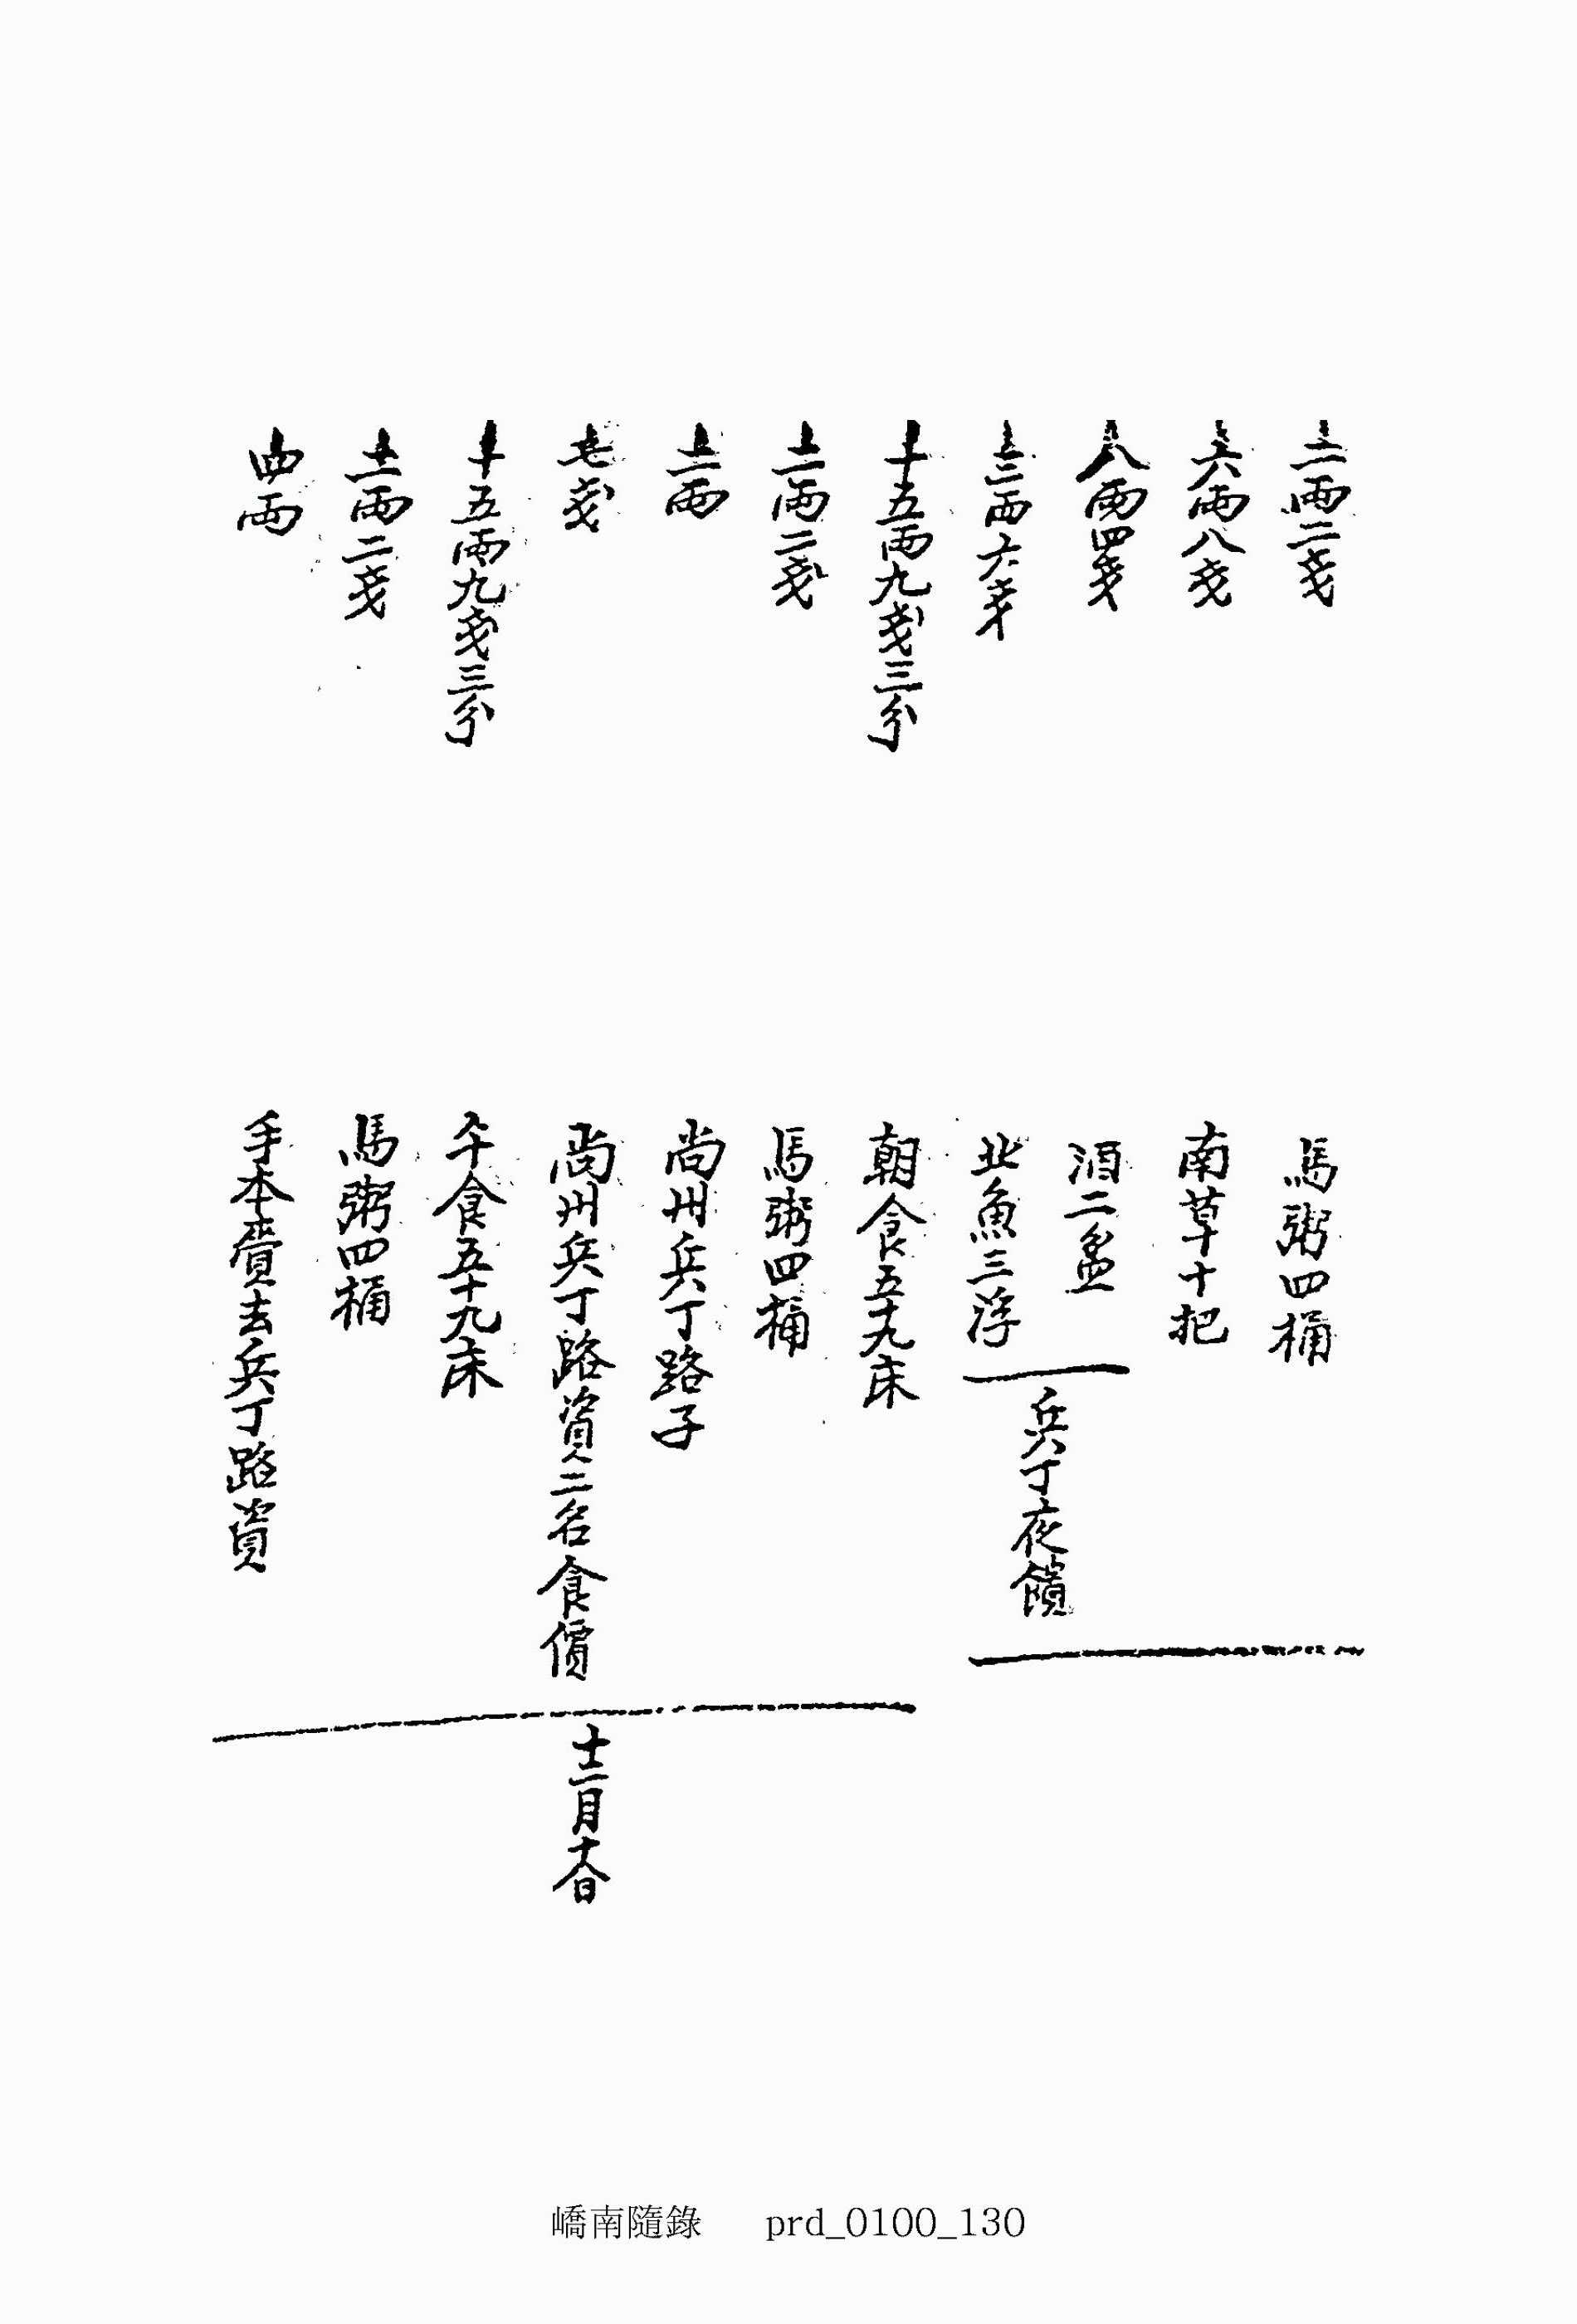 二兩二戔 馬粥四桶
六兩八戔 南草十把
八兩四戔 酒二盆
三兩六戔 北魚三浮
兵丁夜饋
十五兩九戔三分 朝食五十九床
二兩二戔 馬粥四桶
二兩 尙州兵丁路子
七戔 尙州兵丁路資二名食價
十五兩九戔三分 午食五十九床
二兩二戔 馬粥四桶
四兩 手本賷去兵丁路資
十二月十八日
嶠南隨錄 prd_0100_130